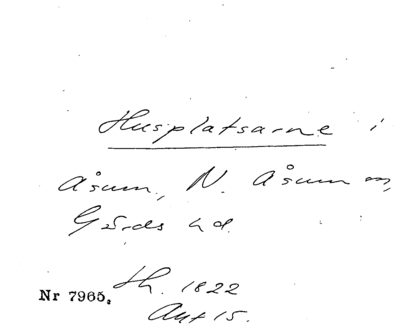 Husplatsarne i
Åsum, N. Åsum sn,
Gärds hd.
Nr 7965. th. 1822
Akt 15.